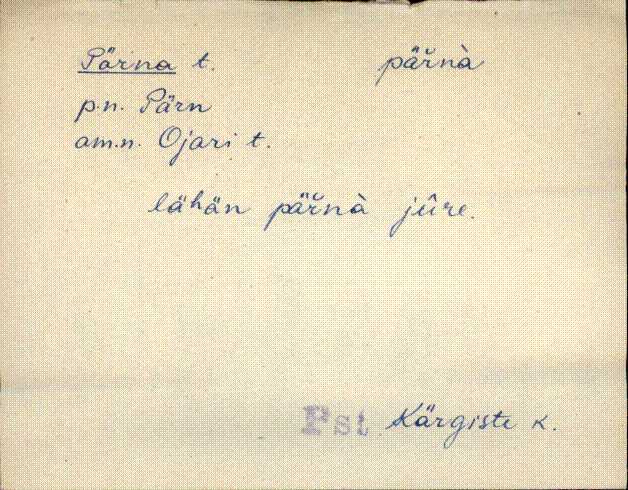 Pärna t. pär̆nà
p.n. Pärn
am.n. Ojari t.
lähän pär̆nà jûre.
Pst Kärgiste k.